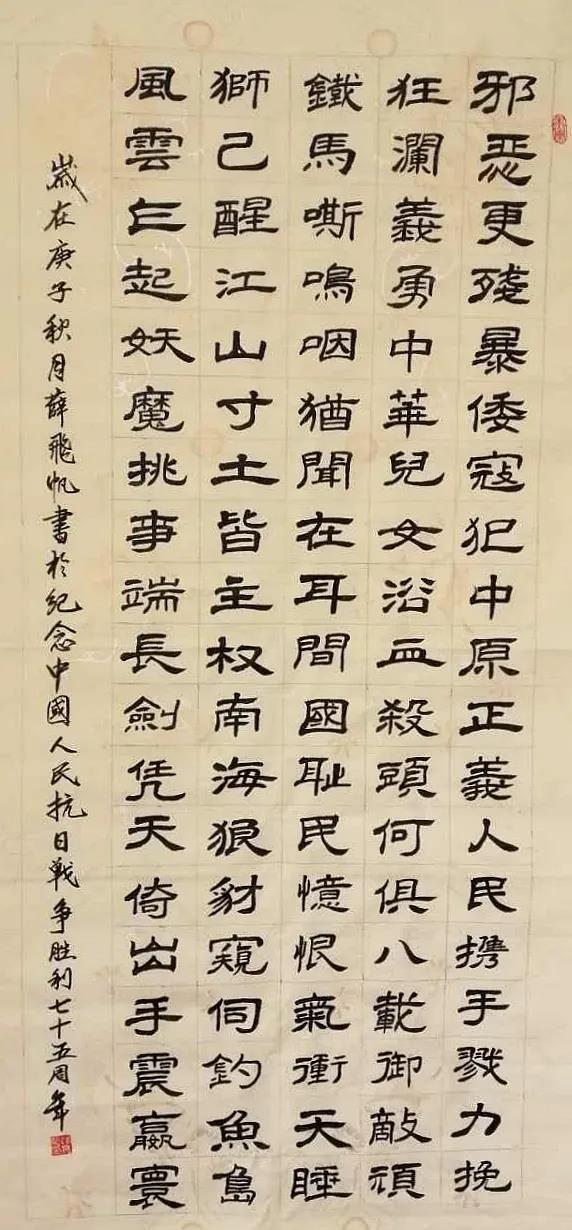 邪惡更殘暴倭寇犯中原正義人民携手戮力挽
狂瀾義勇中華兒女浴血殺頭何俱八載御敵頑
鐵馬嘶鳴咽猶聞在耳間國耻民憶恨氣衝天睡
獅己醒江山寸土皆主权南海狼豺窺伺釣魚島
風雲乍起妖魔挑事端長劍凭天倚出手震嬴寰
歲在庚子秋月薛飛帆書於纪念中國人民抗日戰争胜利七十五周年